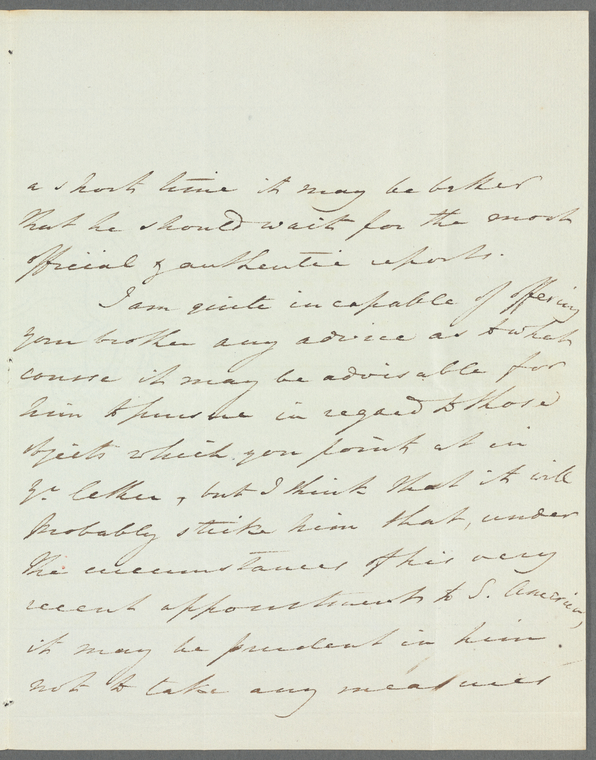 a short time it may be better
that he should wait for the most
official & authentic reports.
I am quite incapable of offering
your brother any advice as to what
course it may be advisable for
him to pursue in regard to those
objects which you point at in
yr. letter, but I think that it will
probably strike him that, under
the circumstances of his very
recent appointment to S. America,
it may be prudent in him
not to take any measures